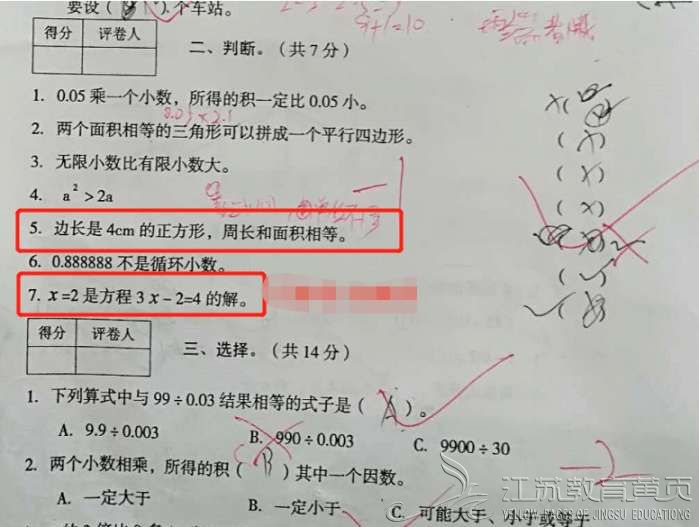 要设( )个车站。
9+1=10
得分 评卷人
二、判断。(共7分)
1. 0.05乘一个小数，所得的积一定比0.05小。
2. 两个面积相等的三角形可以拼成一个平行四边形。
(×)
3. 无限小数比有限小数大。
(×)
4. a²>2a
(×)
5. 边长是4cm的正方形，周长和面积相等。
6. 0.888888不是循环小数。
(✓)
7. x=2是方程3x-2=4的解。
得分 评卷人
三、选择。(共14分)
1. 下列算式中与99÷0.03结果相等的式子是(A)。
A. 9.9÷0.003 B. 990÷0.003 C. 9900÷30
2. 两个小数相乘，所得的积(B)其中一个因数。
-2
A. 一定大于 B. 一定小于 C. 可能大于、小于或等于
江苏教育黄页
YELLOW PAGES OF JINGSU EDUCATIONG